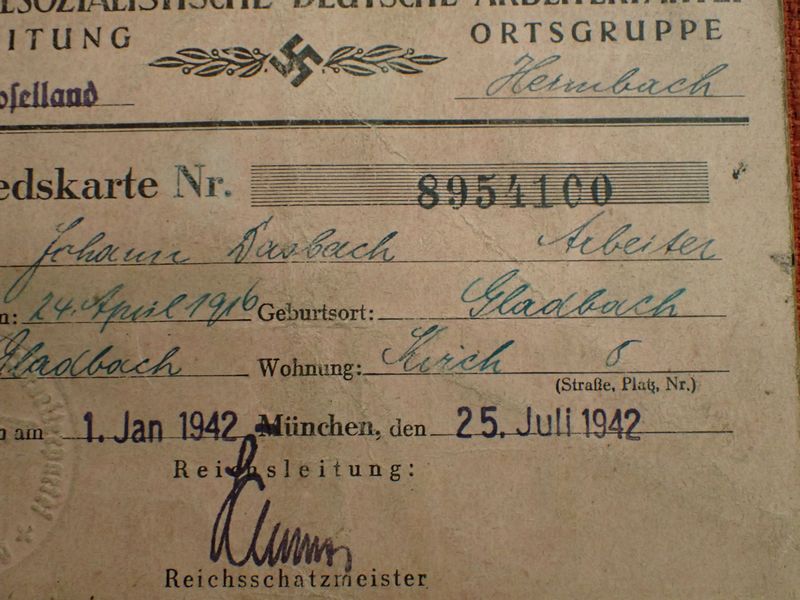 LSOZIALISTISCHE DEUTSCHE ARBEITERPARTEI
EITUNG ORTSGRUPPE
oselland Heimbach
edskarte Nr. 8954100
Johann Dasbach Arbeiter
n: 24. April 1916 Geburtsort: Gladbach
Gladbach Wohnung: Kirch 8
(Straße, Platz, Nr.)
n am 1. Jan 1942 München, den 25. Juli 1942
Reichsleitung:
Reichsschatzmeister